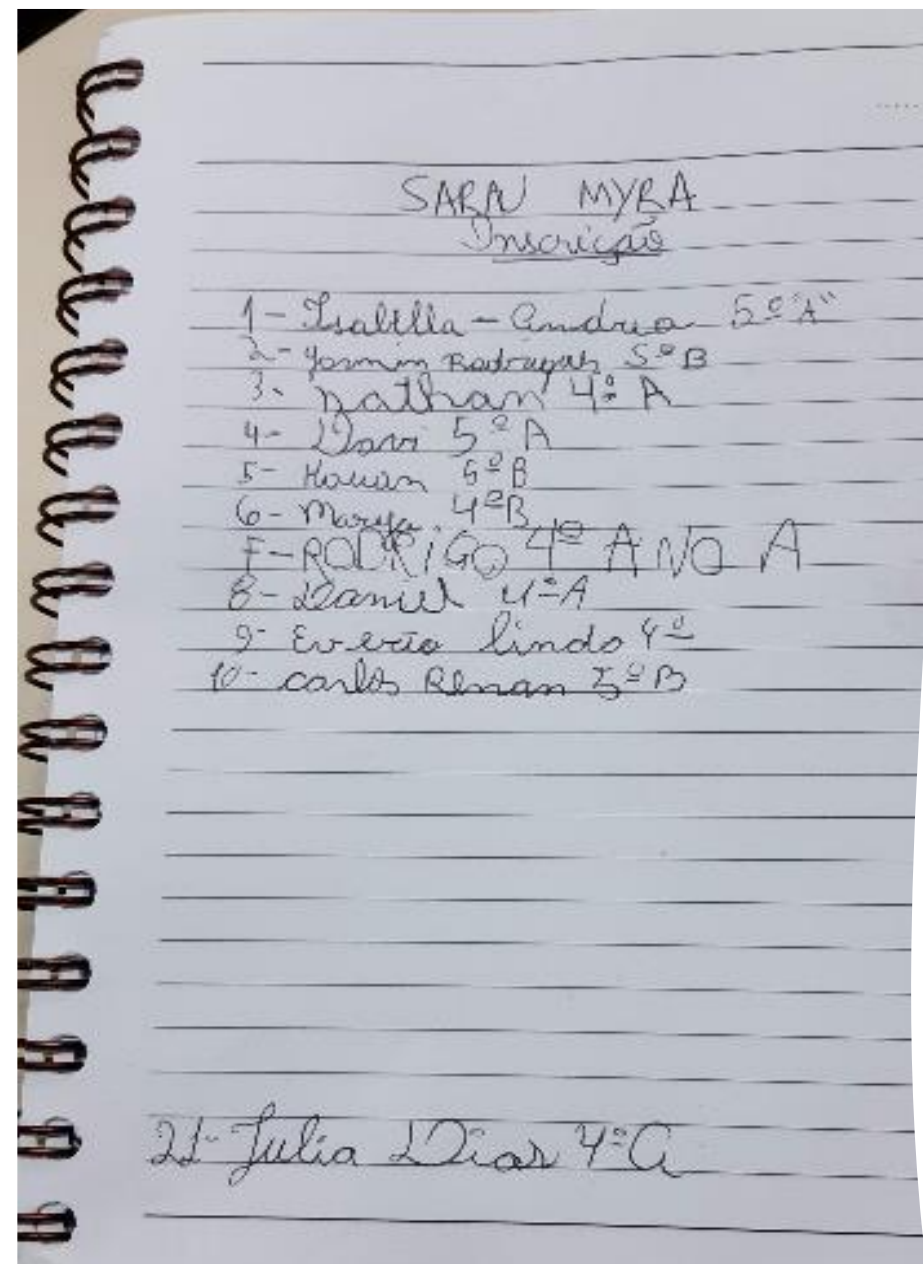 SARAU MYRA
Inscrição
1- Isabella - Andrea 5º "A"
2- Yasmin Rodrigues 5º B
3- nathan 4º A
4- Davi 5º A
5- Kauan 5º B
6- 4ºB
7- RODRIGO 4º ANO A
8- Daniel 4ºA
9- lindo 4º
10- carlos Renan 5º B
21- Julia Dias 4ºA